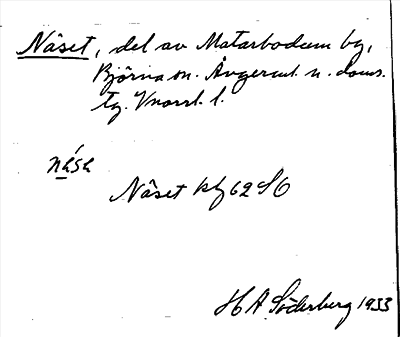 Näset, del av Matarbodum by,
Björna sn. Ångerml. n. doms.
tg. Vnorrl. l.
Näset kbf 62 S6
H A Söderberg 1933